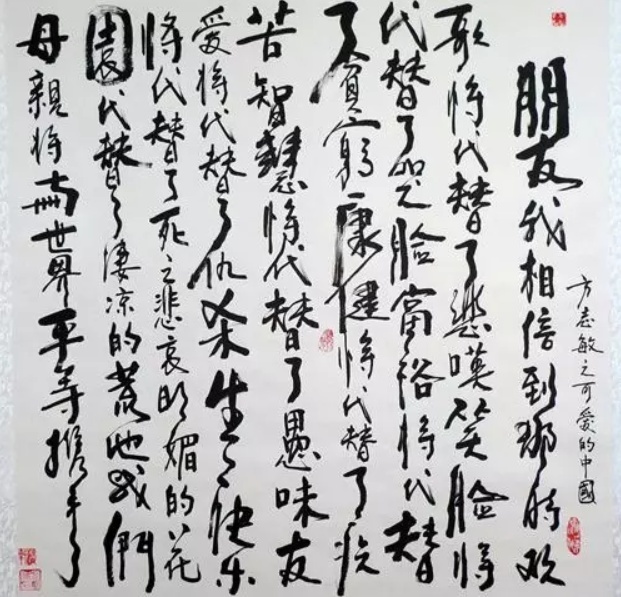 方志敏之可愛的中國
朋友我相信到那時欢
歌将代替了悲嘆笑脸将
代替了哭脸富裕将代替
了貧窮康健将代替了疾
苦智慧将代替了愚昧友
愛将代替了仇杀生之快乐
将代替了死之悲哀明媚的花
園代替了凄凉的荒地我們
母親将與世界平等携手了